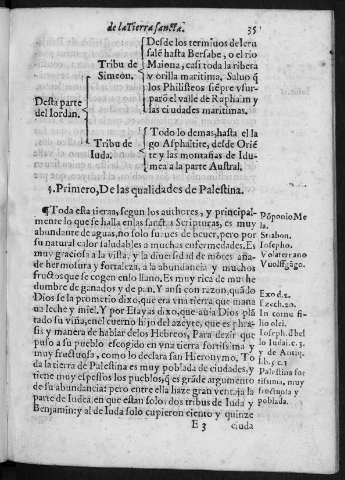 de la Tierra sancta. 35
Desde los terminos de Ieru
salẽ hasta Bersabe, o el rio
Maiona, casi toda la ribera
y orilla maritima. Saluo q̃
los Philisteos siẽpre vsur-
parõ el valle de Raphaim y
las ciudades maritimas.
Tribu de
Simeon.
Desta parte
del Iordan.
Tribu de
Iuda.
Todo lo demas, hasta el la
go Asphaltite, desde Oriẽ
te y las montañas de Idu-
mea a la parte Austral.
§. Primero, De las qualidades de Palestina.
¶Toda esta tierra, segun los authores, y principal-
mente lo que se halla en las sanctas Scripturas, es muy
abundante de aguas, no solo suaues de beuer, pero por
su natural calor saludables a muchas enfermedades. Es
muy graciosa a la vista, y la diuersidad de mõtes aña-
de hermosura y fortaleza, a la abundancia y muchos
fructos que se cogen en lo llano. Es muy rica de muche
dumbre de ganados y de pan. Y ansi con razon, quãdo
Dios se la prometio dixo, que era vna tierra que mana
ua leche y miel. Y por Esayas dixo, que auia Dios plã
tado su viña, en el cuerno hijo del azeyte, que es phra-
sis y manera de hablar de los Hebreos, Para dezir que
puso a su pueblo escogido en vna tierra fortissima y
muy fructuosa, como lo declara san Hieronymo. To
da la tierra de Palestina es muy poblada de ciudades, y
tiene muy espessos los pueblos, q̃ es grãde argumento
de su abundancia: pero entre ella haze gran ventaja la
parte de Iudea, en que estan solos dos tribus de Iuda y
Benjamin: y al de Iuda solo cupieron ciento y quinze
Põponio Me
la.
Strabon.
Iosepho.
Volaterrano
Exod. 3.
Ezech. 20.
Palestina for
tissima, muy
fructuosa y
poblada.
E 3 ciuda